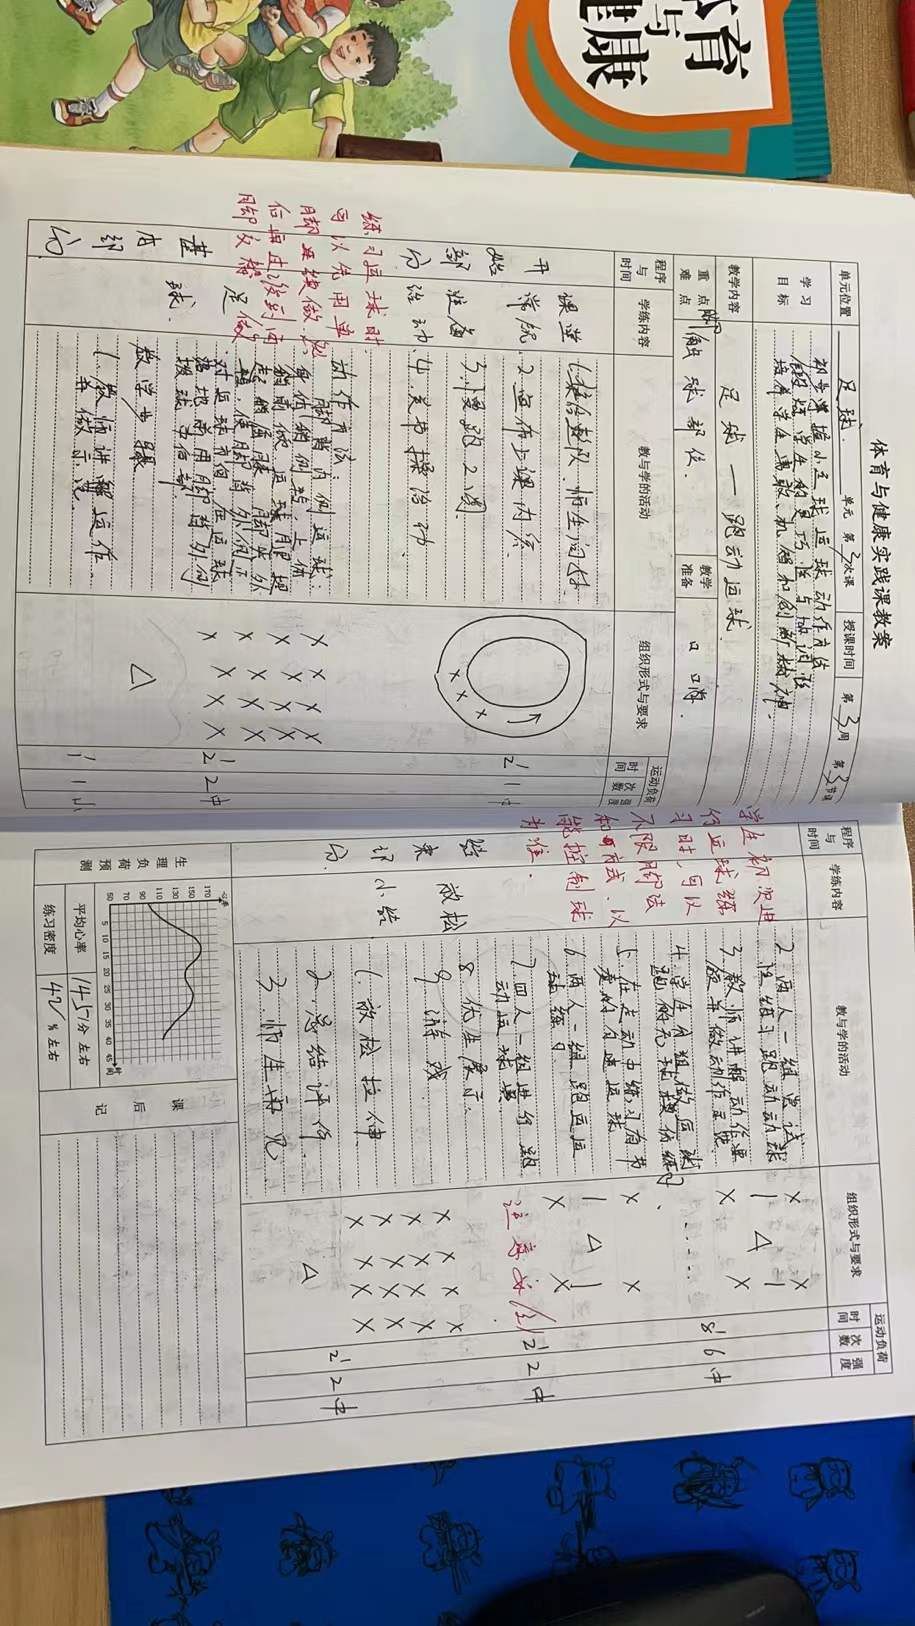 体育
与
健康
体育与健康实践课教案
单元位置 足球 单元 第 3 次课 授课时间 第 3 周 第 3 节课
学习目标
初步掌握小足球运球动作方法
锻炼学生的灵巧性与协调性
培养学生勇敢、机智和创新精神.
教学内容 足球 — 跑动运球
重点难点 脚触球部位. 教学准备 口哨.
程序与时间 学练内容 教与学的活动 组织形式与要求 运动负荷
时间 次数 强度
开始部分
课堂常规
准备活动.
1.集合整队.师生问好.
2.宣布上课内容.
3.慢跑2圈.
4.关节操活动.
2' 1 中
练习运球时.
可以先用单
脚连续做.然
后再过渡到两
脚交替做.
基本部分
足球.
动作方法:
脚背内侧运球:
身体稍侧转,上体
稍前倾 运球腿提
起稍屈膝 脚尖外
转,使脚背外侧正
对运球方向,在运球
落地前用脚背外侧
拨球中后部.
2' 2 中
教学步骤
1.教师讲解运作.
并做示范.
1' 1 小
程序与时间 学练内容 教与学的活动 组织形式与要求 运动负荷
时间 次数 强度
学生初次进
行运球练
习时,可以
不限脚法
和方式.以
能控制球
为准.
2.两人一组尝试
性练习跑动动球
3.教师讲解动作要
领并做动作示范.
4.学生分组做运球
跑的无球模仿练习.
5.在走动中练习有节
奏的匀速运球
6.两人一组 跑运运
动练习.
7.四人一组进行跑
动运球赛.
8.优生展示.
9.游戏.
8' 6 中
注意安全
2' 2 中
结束部分.
放松
小结
1.放松拉伸.
2.总结评价.
3.师生再见
2' 2 中
生理负荷预测
心率
170
150
130
110
90
70
50
5 10 15 20 25 30 35 40 45 时间
平均心率 145 1分 左右
练习密度 42 % 左右
课后记